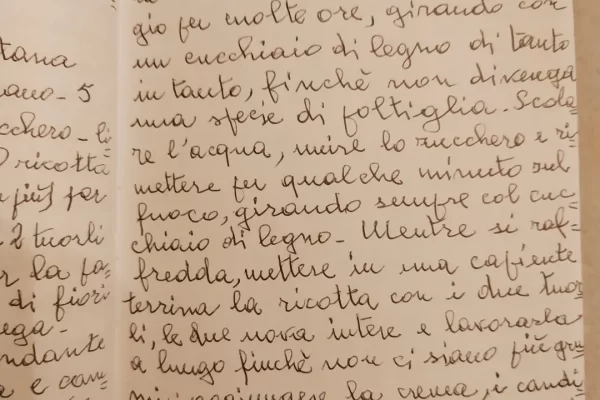 tana
ano - 5
cchero - li=
ricotta
più) far
2 tuorli
r la fa=
di fiori
ega -
ndante
a e can=
gio per molte ore, girando con
un cucchiaio di legno di tanto
in tanto, finchè non divenga
una specie di poltiglia. Scola=
re l'acqua, unire lo zucchero e ri=
mettere per qualche minuto sul
fuoco, girando sempre col cuc=
chiaio di legno - Mentre si raf=
fredda, mettere in una capiente
terrina la ricotta con i due tuor=
li, le due uova intere e lavorarla
a lungo finchè non ci siano più gru=
la crema, i candi=